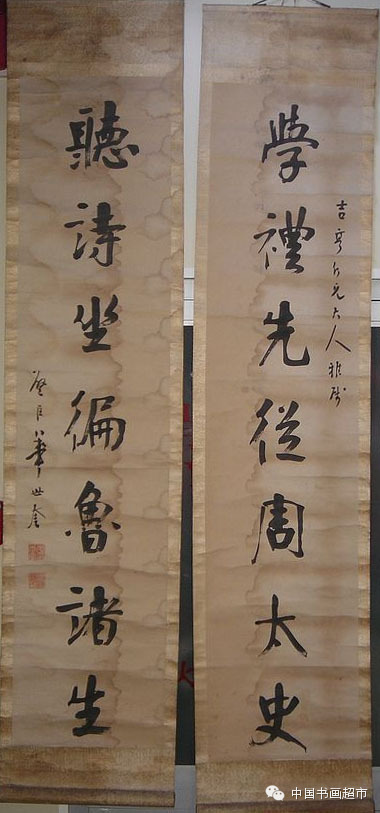 吉亨仁兄大人雅属
學禮先從周太史
聽詩坐徧魯諸生
華世奎
中国书画超市